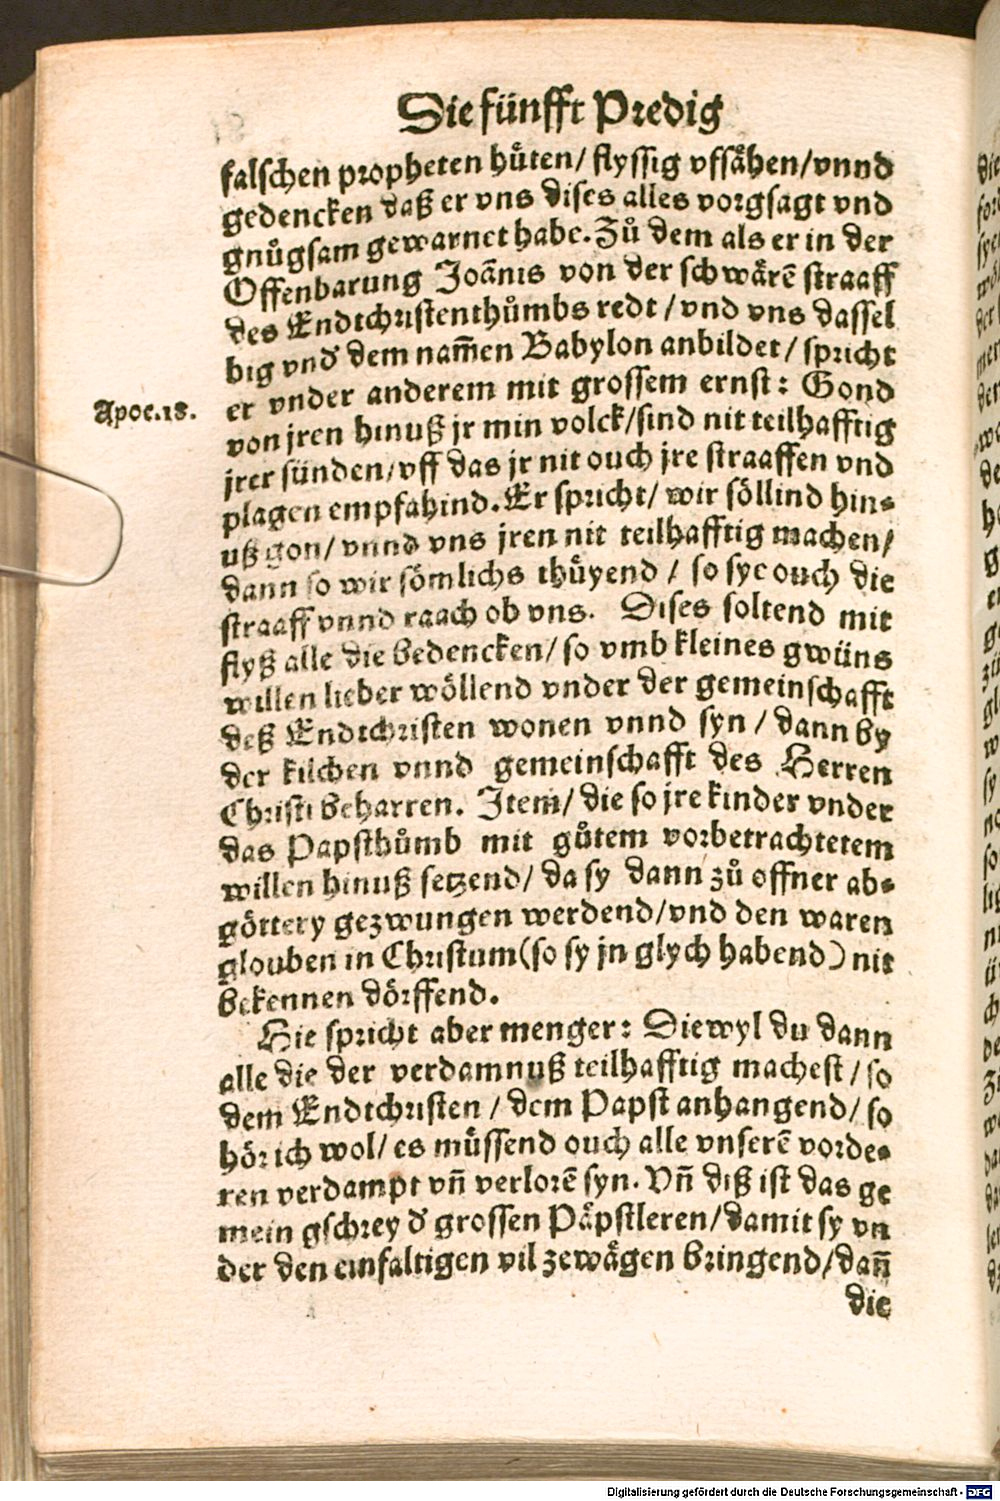 Die fünfft Predig
falschen propheten huͤten/ flyssig vfsaͤhen/vnnd
gedencken daß er vns dises alles vorgsagt vnd
gnuͦgsam gewarnet habe. Zuͦ dem als er in der
Offenbarung Joãnis von der schwaͤrẽ straaff
des Endtchristenthuͦmbs redt / vnd vns dassel
big vnd̕ dem nam̃en Babylon anbildet / spricht
Apoc.18.
er vnder anderem mit grossem ernst: Gond
von jren hinuß jr min volck/sind nit teilhafftig
jrer sünden/vff das jr nit ouch jre straaffen vnd
plagen empfahind. Er spricht/ wir söllind hin⸗
uß gon/ vnnd vns jren nit teilhafftig machen/
dann so wir sömlichs thuͤyend / so sye ouch die
straaff vnnd raach ob vns. Dises soltend mit
flyß alle die bedencken/ so vmb kleines gwüns
willen lieber wöllend vnder der gemeinschafft
deß Endtchristen wonen vnnd syn / dann by
der kilchen vnnd gemeinschafft des Herren
Christi beharren. Item/ die so jre kinder vnder
das Papsthuͦmb mit guͦtem vorbetrachtetem
willen hinuß setzend/ da sy dann zuͦ offner ab⸗
göttery gezwungen werdend/vnd den waren
glouben in Christum(so sy jn glych habend) nit
bekennen dörffend.
Hie spricht aber menger: Diewyl du dann
alle die der verdamnuß teilhafftig machest / so
dem Endtchristen / dem Papst anhangend/ so
hör ich wol/ es muͤssend ouch alle vnserẽ vorde⸗
ren verdampt vñ verlorẽ syn. Vñ diß ist das ge
mein gschrey d̕ grossen Paͤpstleren/damit sy vn
der den einfaltigen vil zewaͤgen bringend/dañ
die
Digitalisierung gefördert durch die Deutsche Forschungsgemeinschaft - DFG